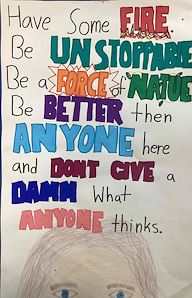 Have Some FIRE.
Be UNSTOPPABLE
Be a FORCE of NATUE
Be BETTER then
ANYONE here
and DONT GIVE a
DAMM What
ANYONE thinks.